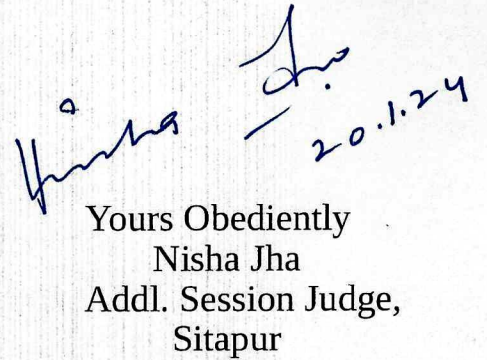 Nisha Jha
20.1.24
Yours Obediently
Nisha Jha
Addl. Session Judge,
Sitapur